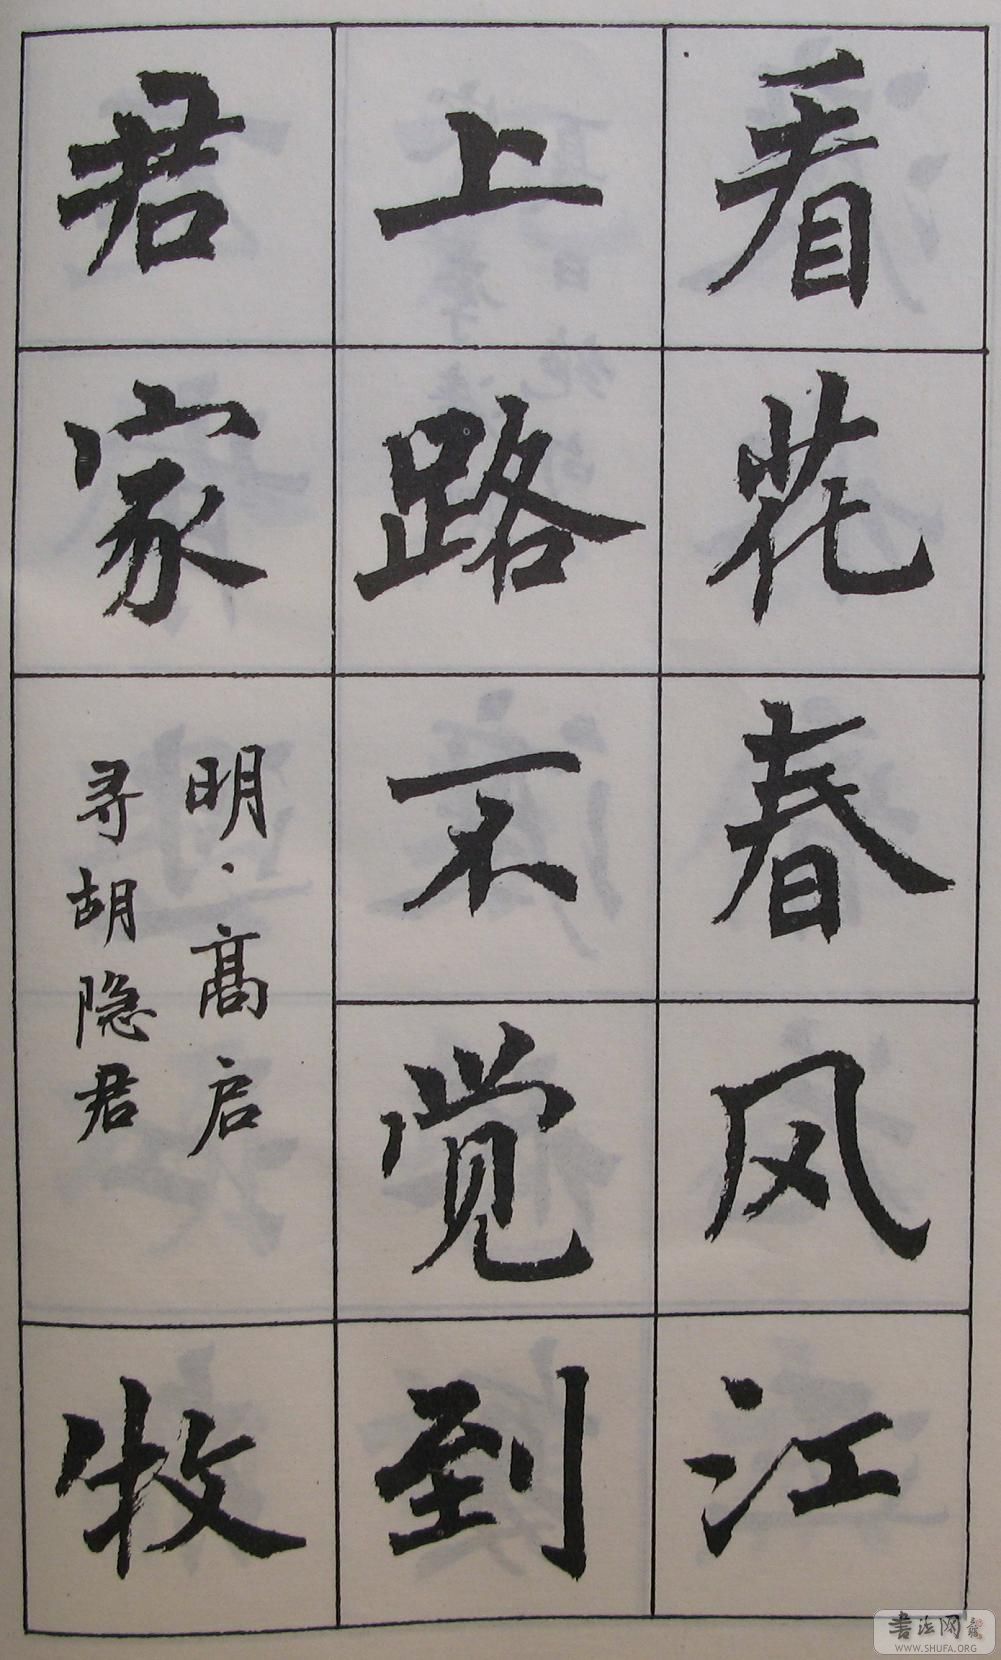 看花春风江
上路不觉到
君家
明·高启
寻胡隐君
牧
书法网
WWW.SHUFA.ORG